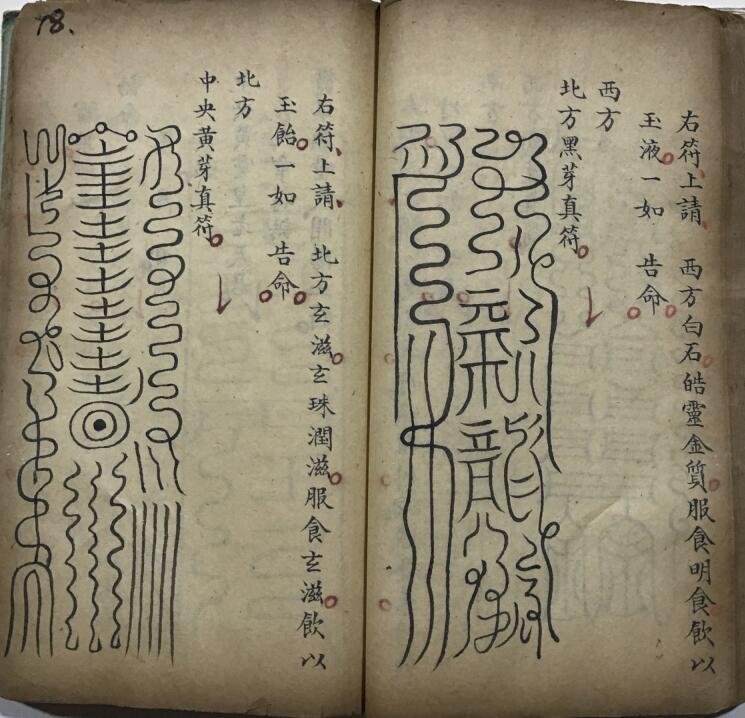 右符上請 西方白石皓靈金質服食明食飲以
玉液一如 告命
西方
北方黑芽真符
右符上請 北方玄滋玄珠潤滋服食玄滋飲以
玉飴一如 告命
北方
中央黃芽真符
78.